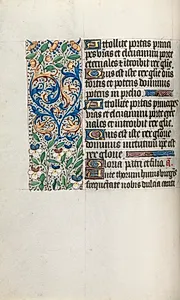 Attollite portas princi
pes vestras et elevamini porte
eternales et introibit rex glorie.
Quis est iste rex glorie dns
fortis et potens dominus
potens in prelio
Attollite portas principes
vestras et elevamini porte eter
nales et introibit rex glie.
Quis est iste rex glorie
dominus virtutum ipse est
rex glorie
Gloria patri et filio. a.
Ante thorum huius virgis
frequentate nobis dulcia cantica